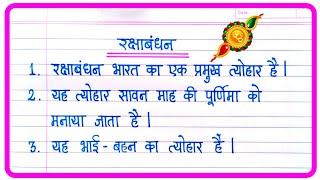 रक्षाबंधन
1. रक्षाबंधन भारत का एक प्रमुख त्योहार है |
2. यह त्योहार सावन माह की पूर्णिमा को
मनाया जाता है |
3. यह भाई - बहन का त्योहार हैं |